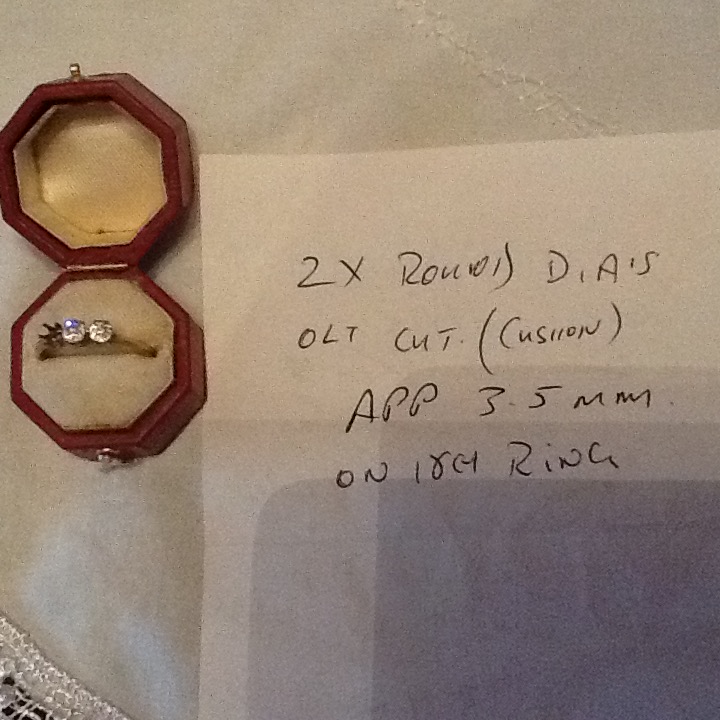 2 X ROUND DIA'S
OLT CUT. (CUSIION)
APP 3.5 mm.
ON 18CT RING